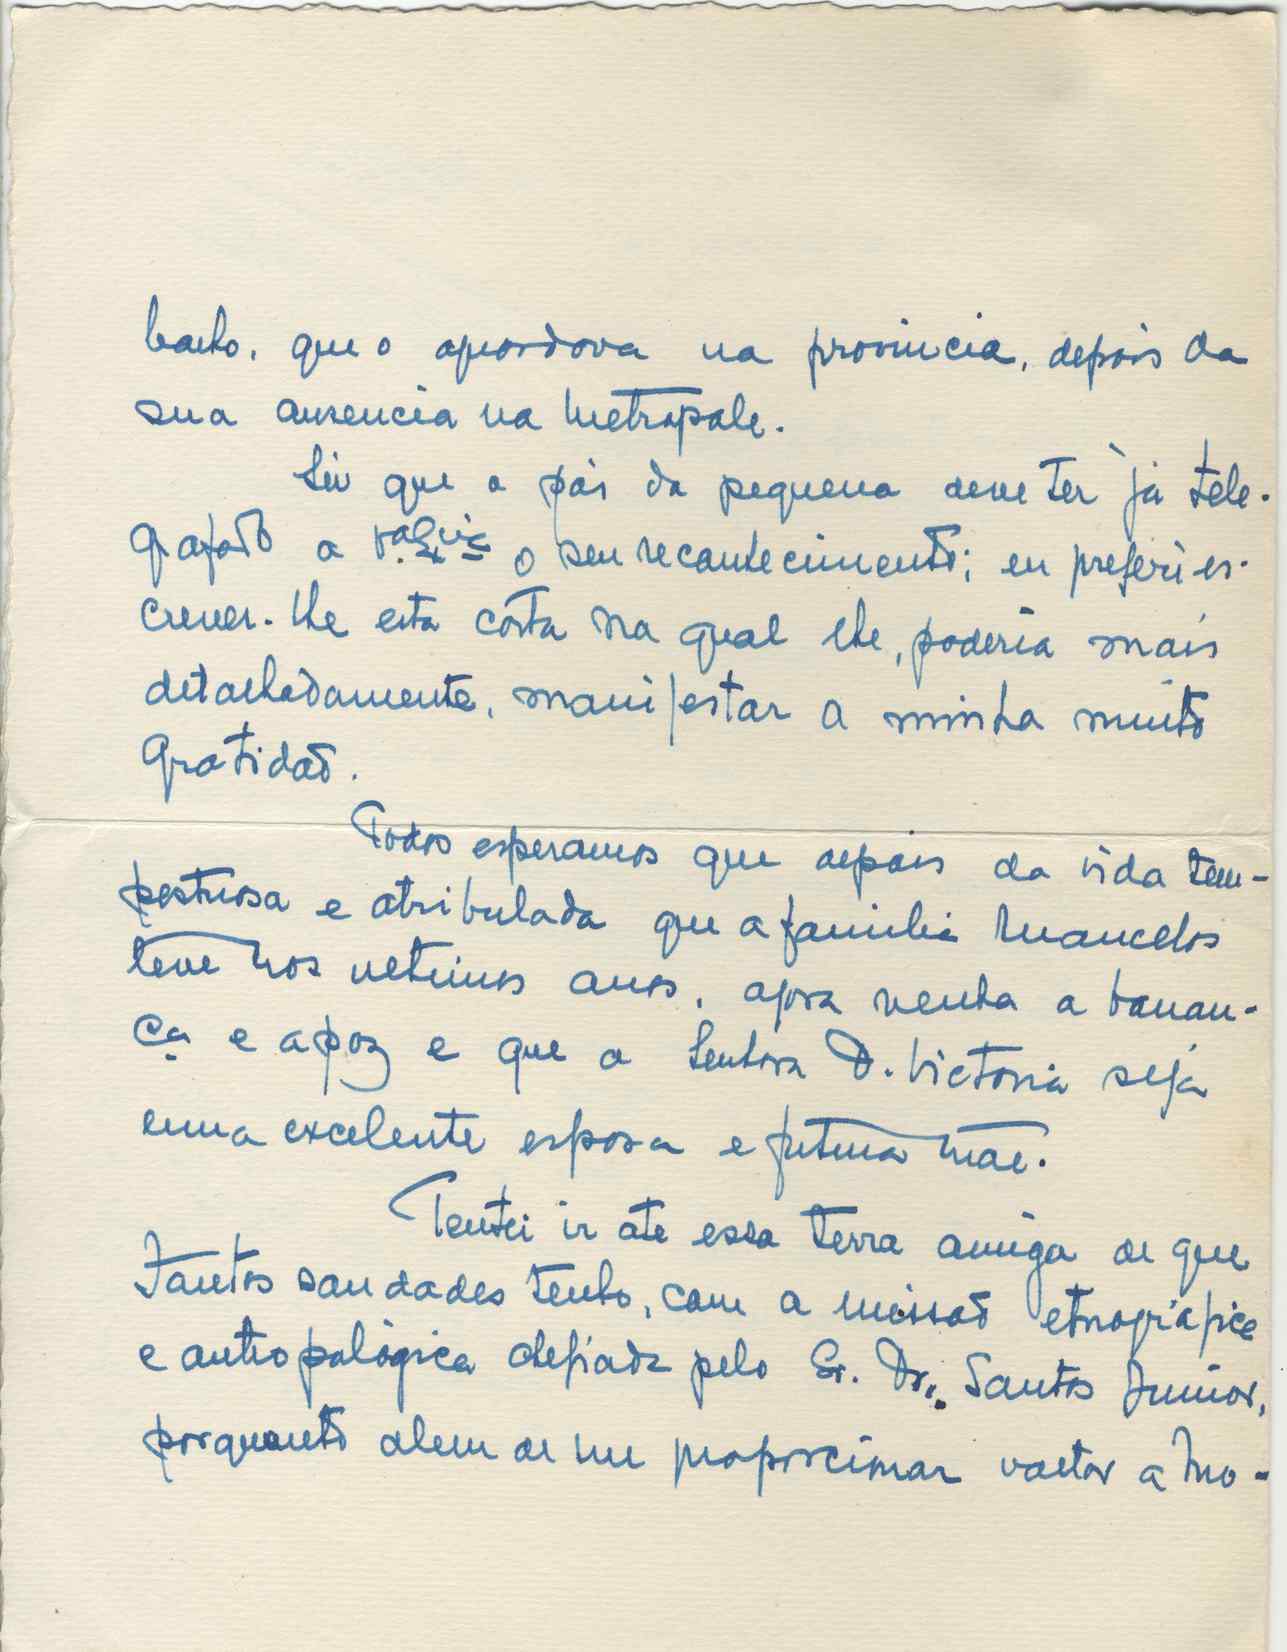 balho, que o aguardava na provincia, depois da
sua ausencia na Metropole.
Sei que o pai da pequena deve ter já tele-
grafado a V. Ex.cia o seu reconhecimento; eu preferi es-
crever-lhe esta carta na qual lhe, poderia mais
detalhadamente, manifestar a minha muito
gratidão.
Todos esperamos que depois da vida tem-
pestuosa e atribulada que a familia Mancelos
teve nos ultimos anos, agora venha a bonan-
ça e a paz e que a Senhora D. Victoria seja
uma excelente esposa e futura Mãe.
Tentei ir ate essa terra amiga de que
tantas saudades tenho, com a missão etnográfica
e antropológica chefiada pelo Sr. Dr. Santos Júnior,
porquanto alem de me proporcionar voltar a Mo-